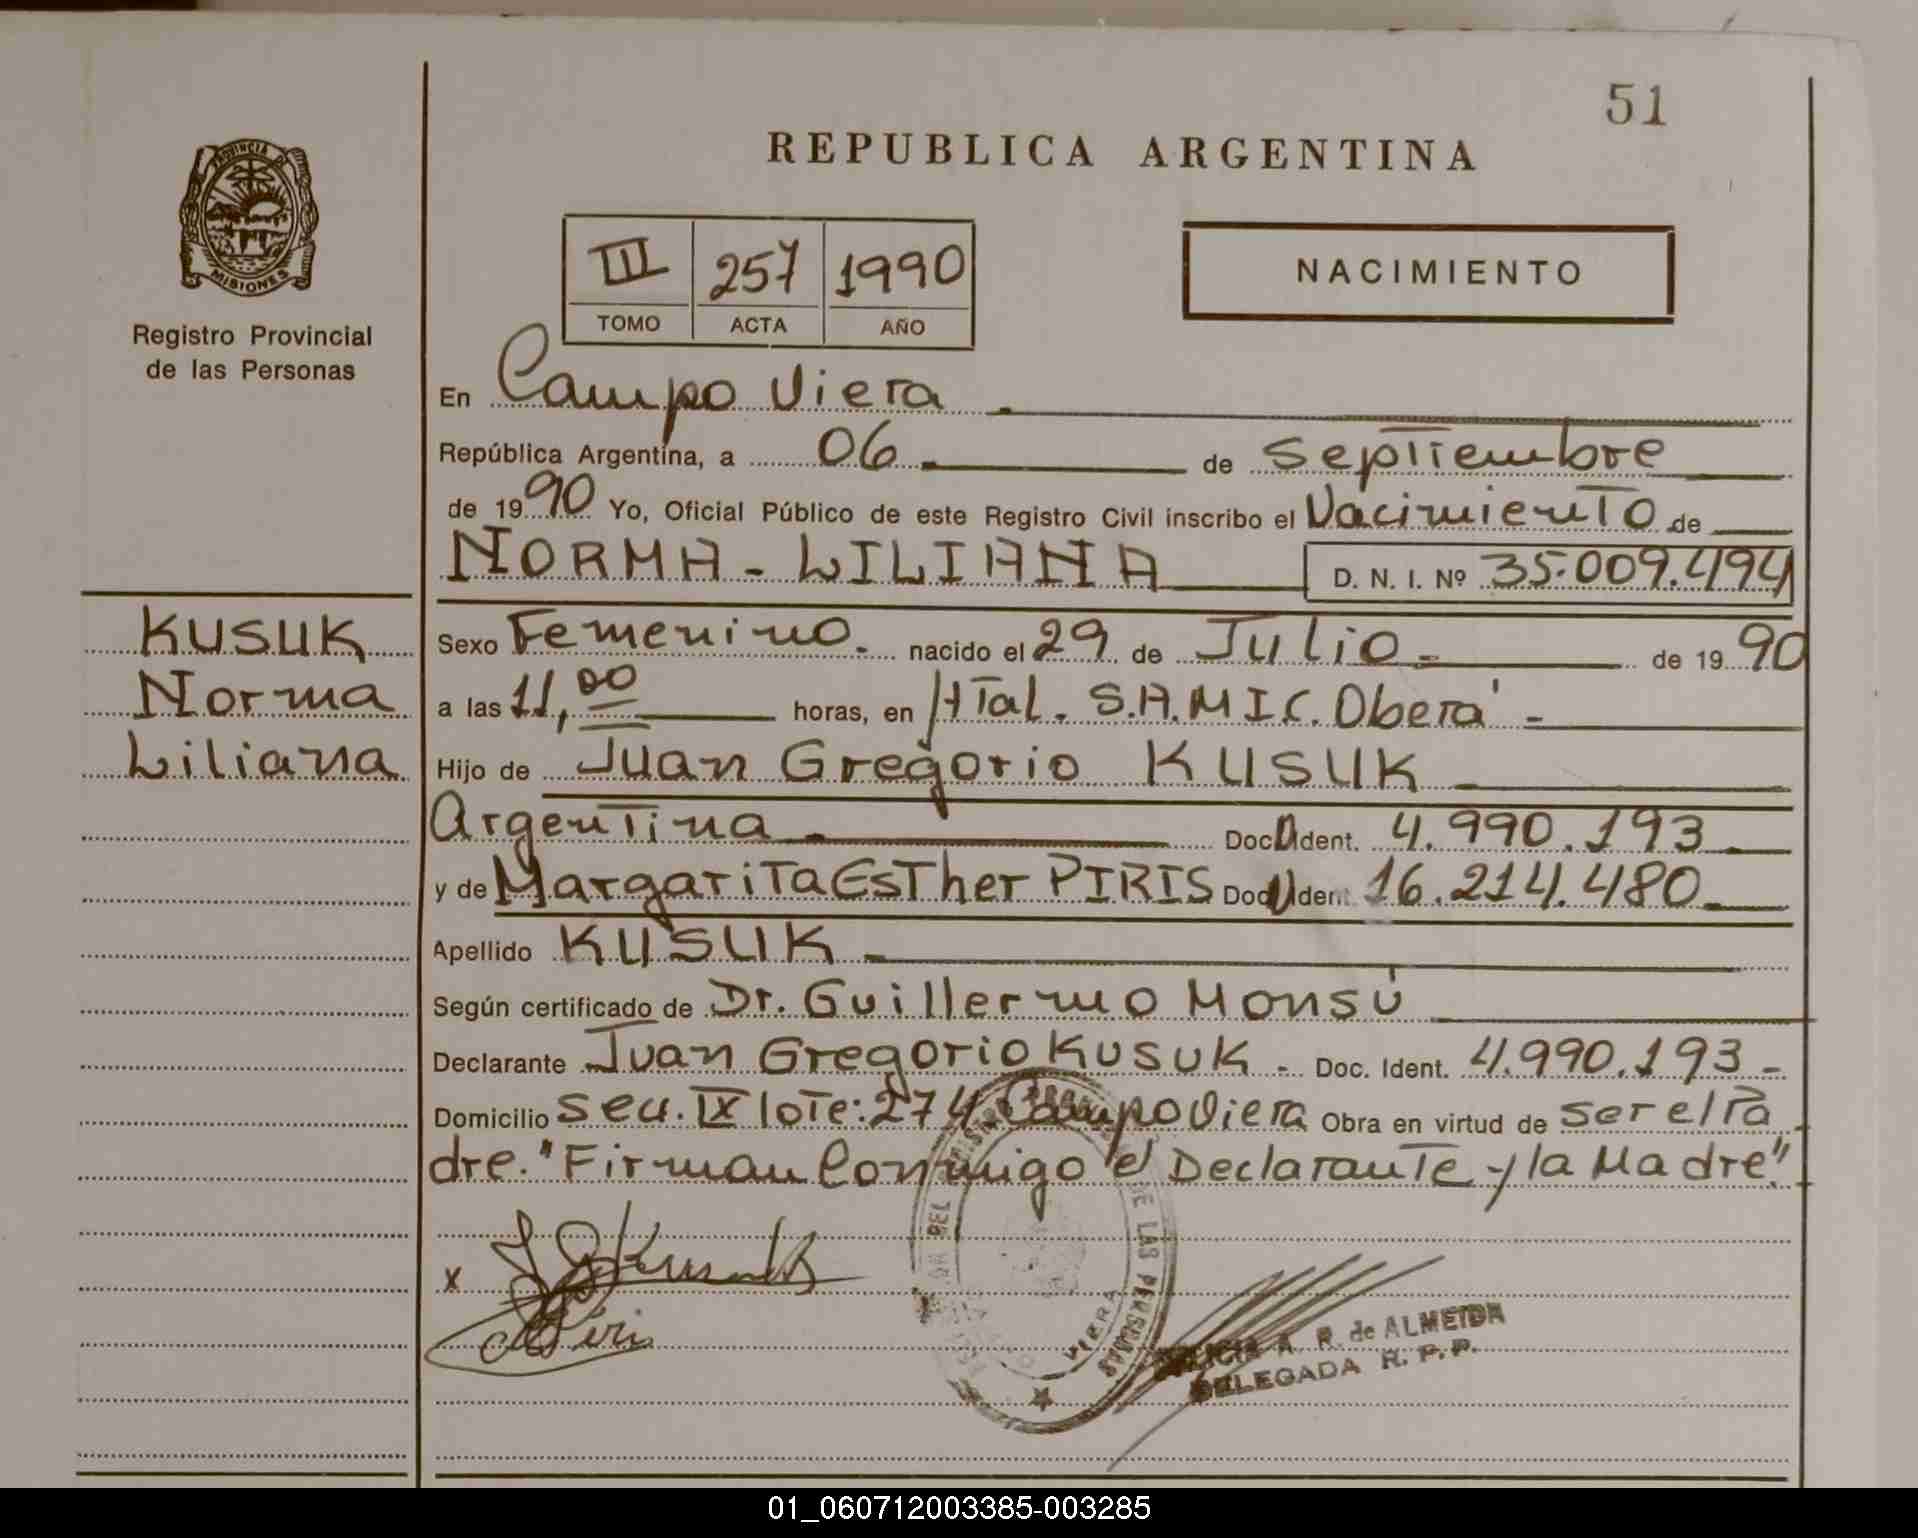 51
REPUBLICA ARGENTINA
PROVINCIA DE
MISIONES
Registro Provincial
de las Personas
III 257 1990
TOMO ACTA AÑO
NACIMIENTO
En Campo Viera
República Argentina, a 06 de septiembre
de 1990 Yo, Oficial Público de este Registro Civil inscribo el Nacimiento de
NORMA - LILIANA D. N. I. Nº 35.009.494
KUSUK
Norma
Liliana
Sexo Femenino. nacido el 29 de Julio de 1990
a las 11,00 horas, en HTal. S.A.M.I.C. Oberá
Hijo de Juan Gregorio KUSUK
Argentina Doc. Ident. 4.990.193
y de Margarita Esther PIRIS Doc. Ident. 16.214.480
Apellido KUSUK
Según certificado de Dr. Guillermo Monsú
Declarante Juan Gregorio Kusuk - Doc. Ident. 4.990.193 -
Domicilio secc. IX lote: 274 Campo Viera Obra en virtud de ser el Pa
dre. "Firman Conmigo el Declarante y la Madre".
x
DE LAS PERSONAS
VIERA
A. R. de ALMEIDA
DELEGADA R. P. P.
01_060712003385-003285